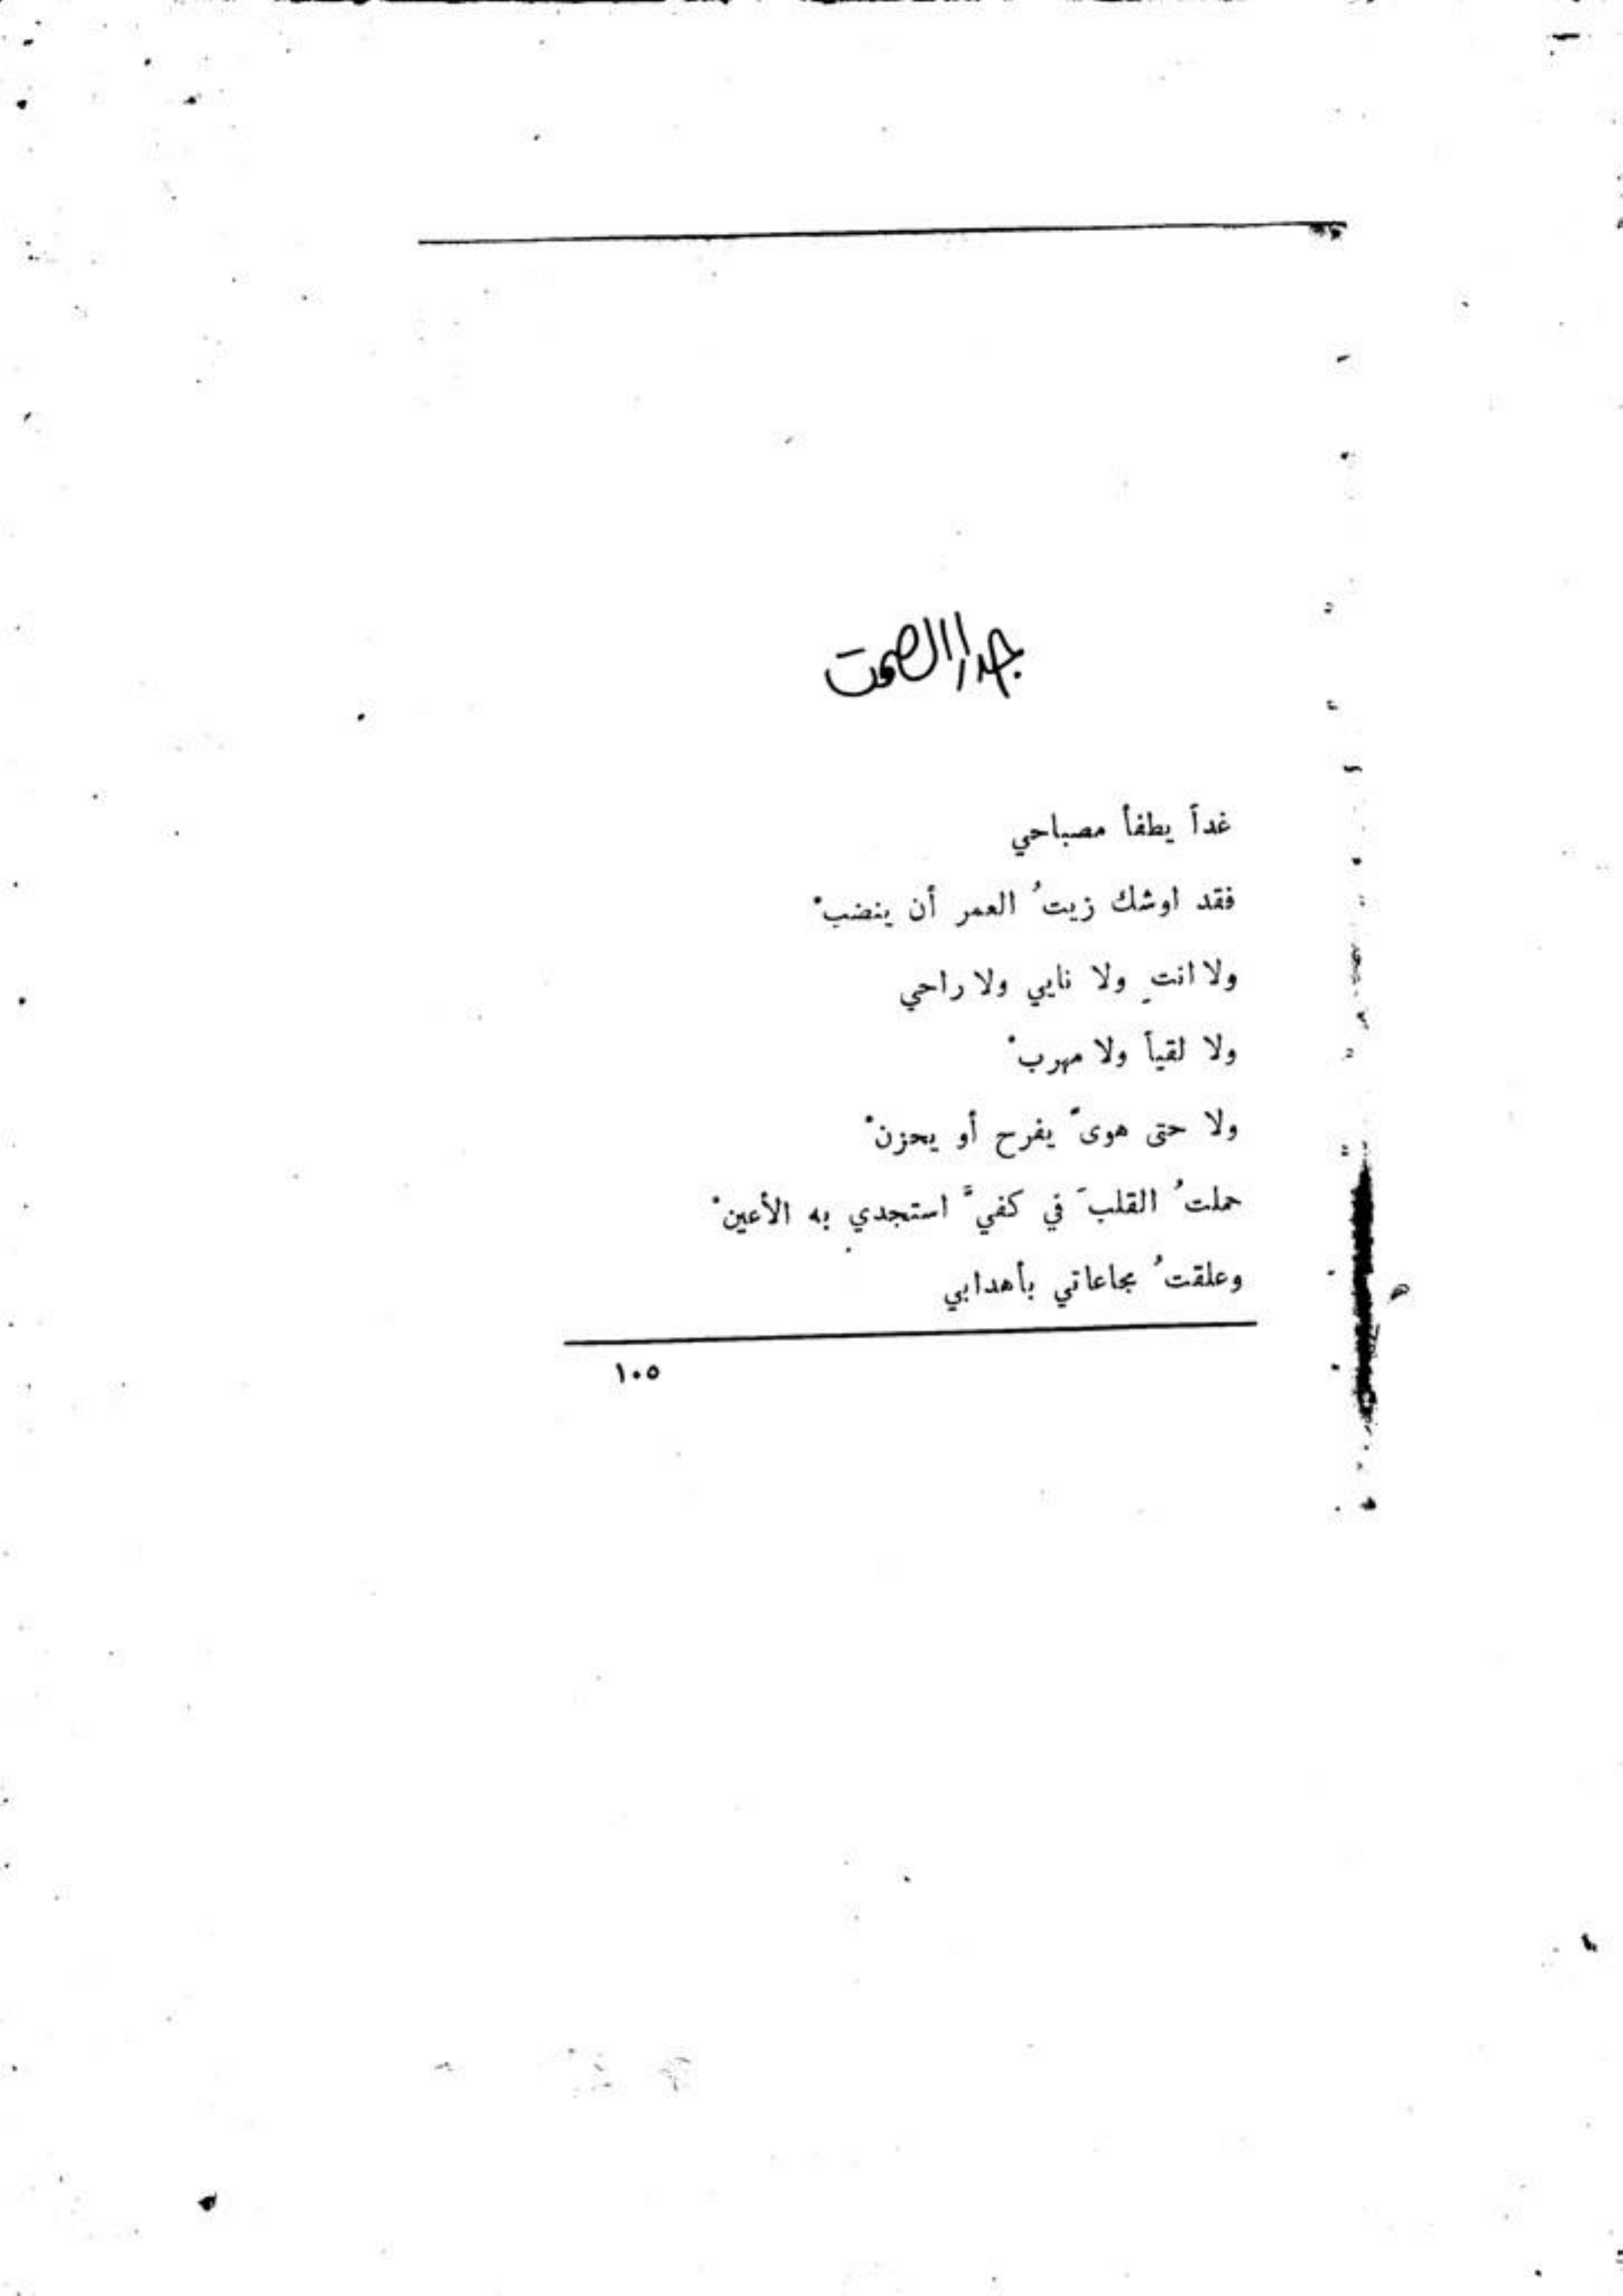 جدار الصمت
غداً يطفأ مصباحي
فقد اوشك زيتُ العمر أن ينضبْ
ولا انتِ ولا نايي ولا راحي
ولا لقيأ ولا مهربْ
ولا حتى هوىً يفرح أو يحزنْ
حملتُ القلبَ في كفيَّ استجدي به الأعينْ
وعلقتُ مجاعاتي بأهدابي
١٠٥